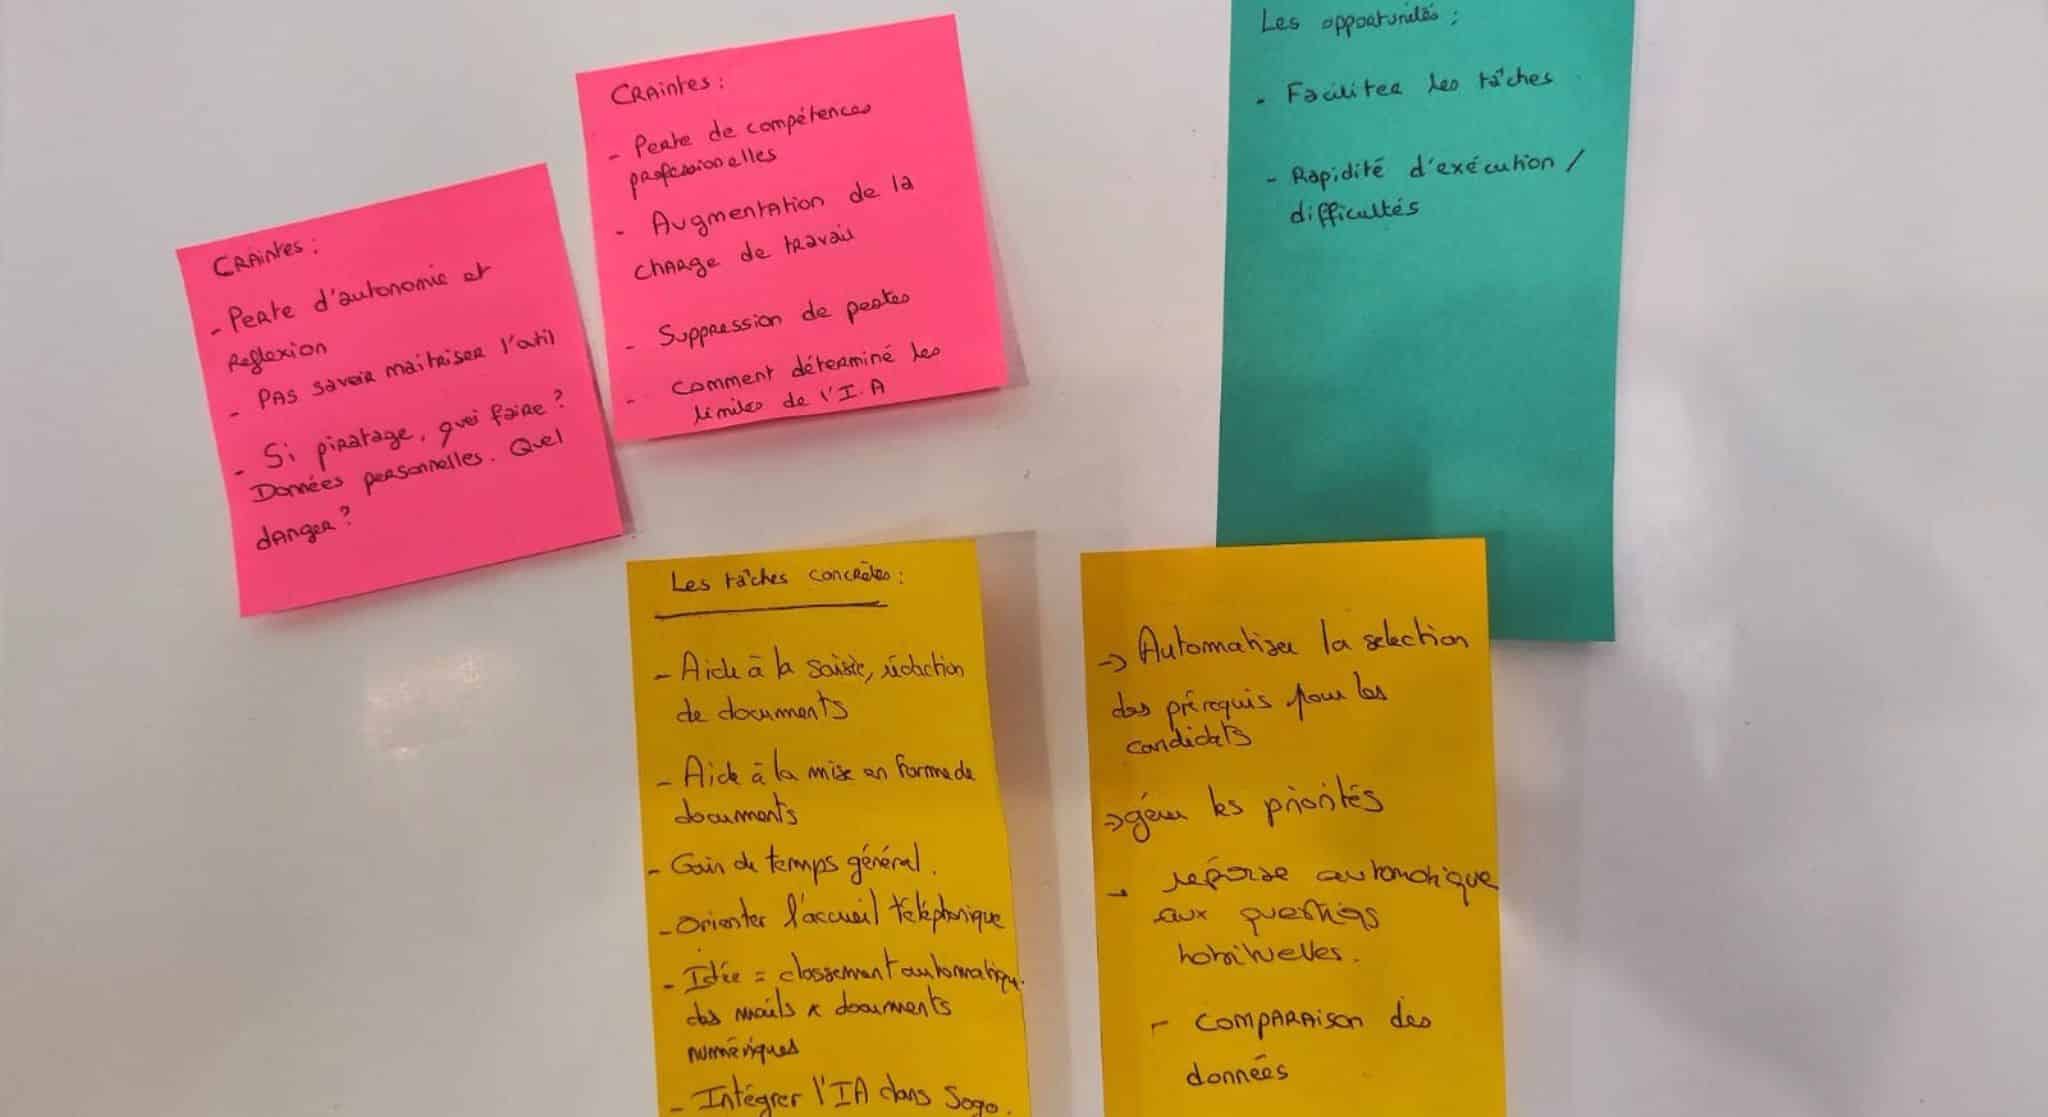 Craintes :
- Perte d'autonomie et
Reflexion
- Pas savoir maitriser l'outil
- Si piratage, quoi faire ?
Données personnelles. Quel
danger ?
Craintes :
- Perte de compétences
professionelles
- Augmentation de la
charge de travail
- Suppression de postes
- Comment déterminé les
limites de l'I.A
Les opportunités :
- Faciliter les tâches
- Rapidité d'exécution /
difficultés
Les tâches concrètes :
- Aide à la saisie, rédaction
de documents
- Aide à la mise en forme de
documents
- Gain de temps général.
- Orienter l'accueil téléphonique
- Idée = classement automatique
des mails x documents
numériques
- Intégrer l'IA dans Sogo.
-> Automatiser la selection
des prérequis pour les
candidats
-> gérer les priorités
- réponse automatique
aux questions
habituelles.
- Comparaison des
données